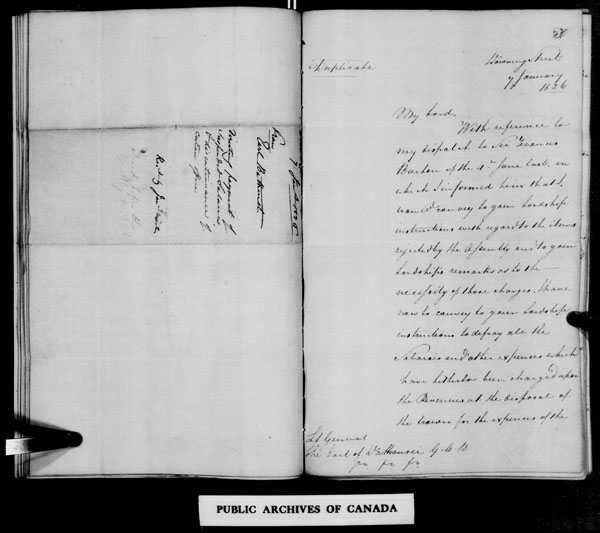 7 Jany 1826
From
Earl Bathurst
payment of
Suspended Salaries
& discontinuance of
certain offices
Duplicate
Downing Street
7 January
1826
My Lord,
With reference to
my dispatch to Sir Francis
Burton of the 4th June last, in
which I informed him that I
would convey to your Lordship
instructions with regard to the items
rejected by the Assembly and to your
Lordship's remarks as to the
necessity of those charges, I have
now to convey to your Lordship
instructions to defray all the
Salaries and other expences which
have hitherto been charged upon
the Revenues at the disposal of
the Crown for the expences of the
Lt General
The Earl of Dalhousie G.C.B.
PUBLIC ARCHIVES OF CANADA